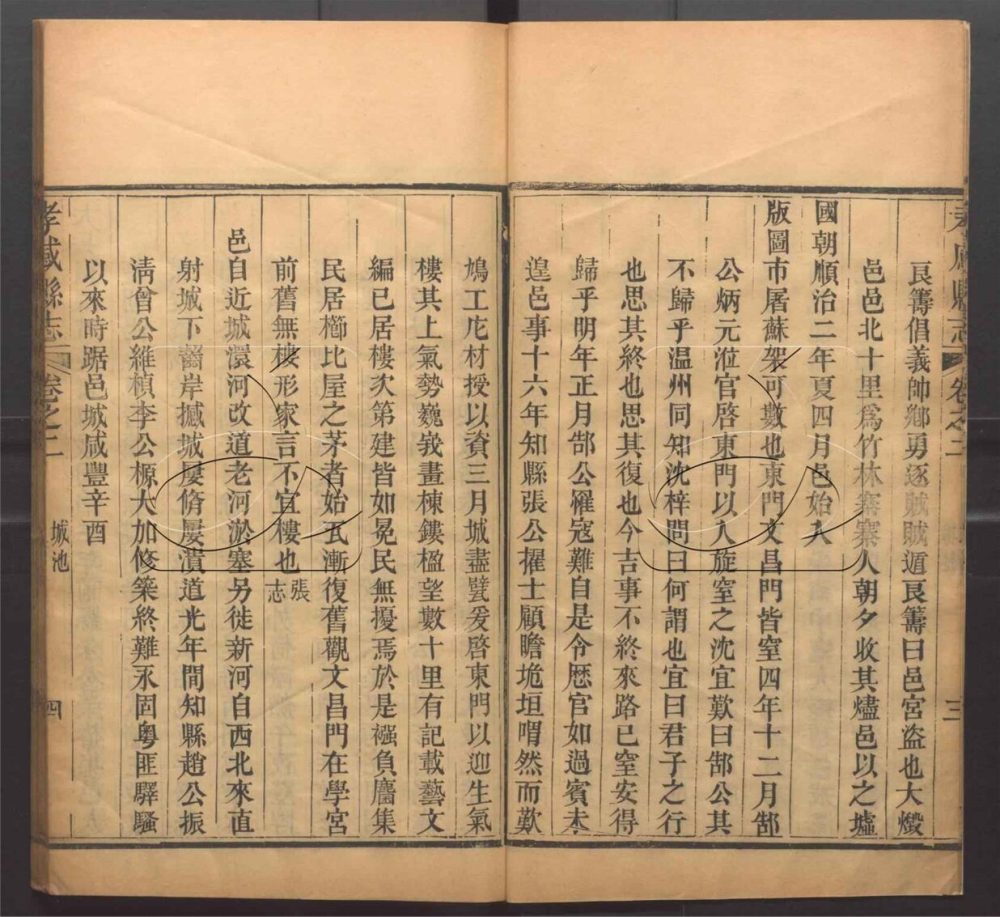 孝感縣志 卷之二 三
艮籌倡義帥鄉勇逐賊賊遁艮籌曰邑宮盜也大燬
邑邑北十里爲竹林寨寨人朝夕收其燼邑以之墟
國朝順治二年夏四月邑始入
版圖市屠蘇架可數也東門文昌門皆窒四年十二月郜
公炳元涖官啓東門以入旋窒之沈宜歎曰郜公其
不歸乎温州同知沈梓問曰何謂也宜曰君子之行
也思其終也思其復也今吉事不終來路已窒安得
歸乎明年正月郜公罹寇難自是令歷官如過賓未
遑邑事十六年知縣張公擢士顧瞻垝垣喟然而歎
鳩工庀材授以資三月城盡甓爰啓東門以迎生氣
樓其上氣勢巍峩畫棟鏤楹望數十里有記載藝文
編已居樓次第建皆如冕民無擾焉於是襁負麕集
民居櫛比屋之茅者始瓦漸復舊觀文昌門在學宮
前舊無樓形家言不宜樓也 張志
邑自近城澴河改道老河淤塞另徙新河自西北來直
射城下齧岸撼城屢脩屢潰道光年間知縣趙公振
淸曾公維楨李公榞大加修築終難永固粵匪驛騷
以來時踞邑城咸豐辛酉
孝感縣志 卷之二 城池 四